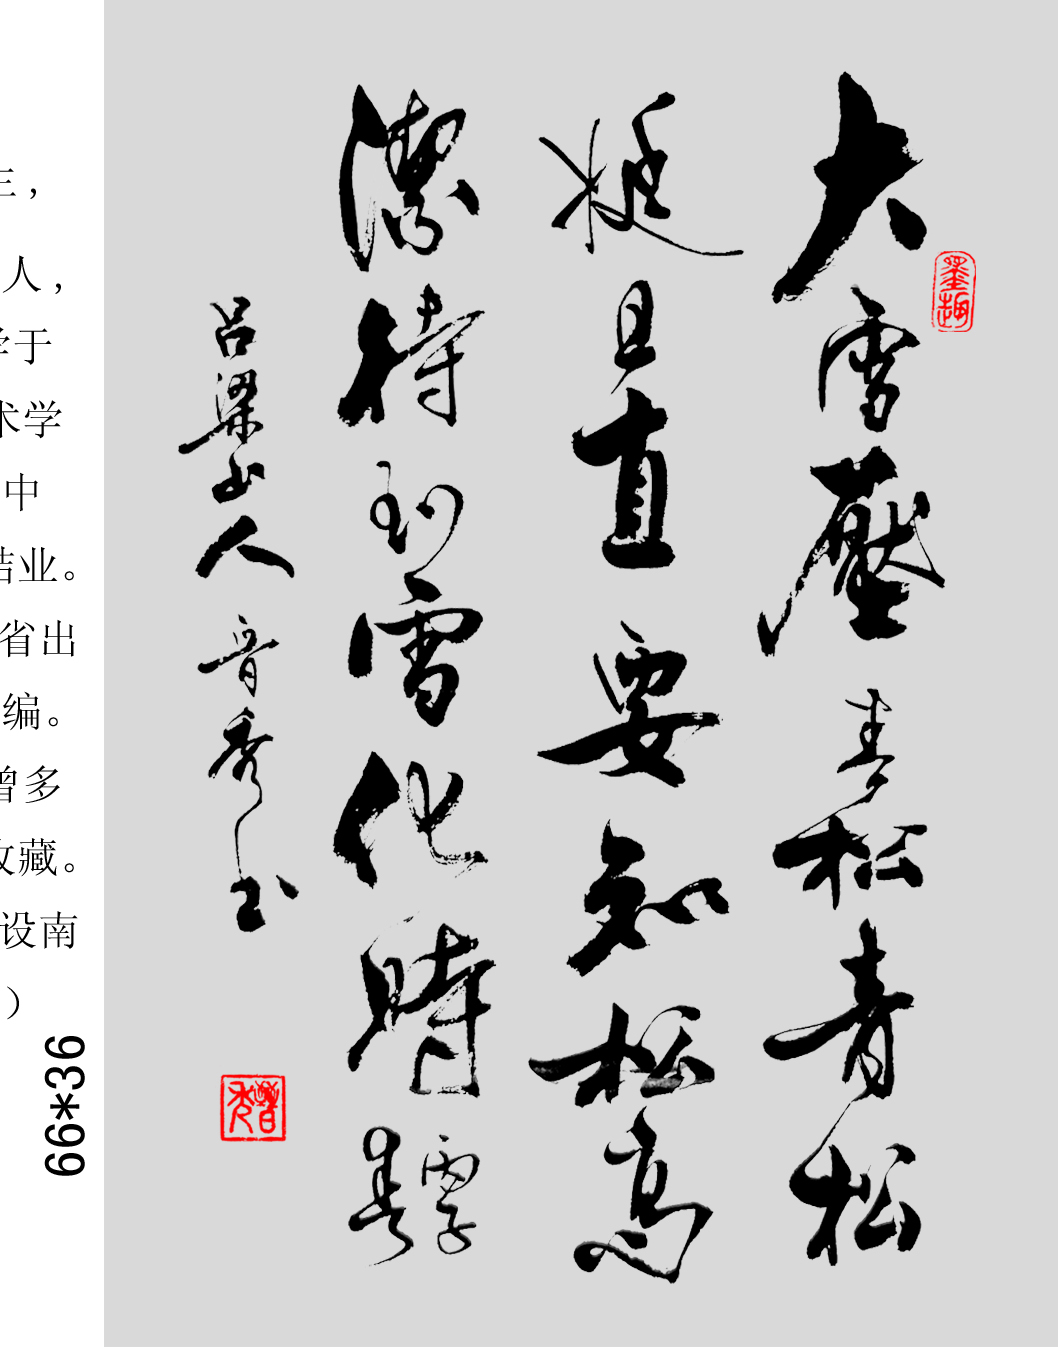 墨趣
大雪壓青松青松
挺且直要知松高
潔待到雪化時
吕梁山人晋秀书
晉秀
人，
学于
术学
中
结业。
省出
编。
曾多
收藏。
设南
）
66*36